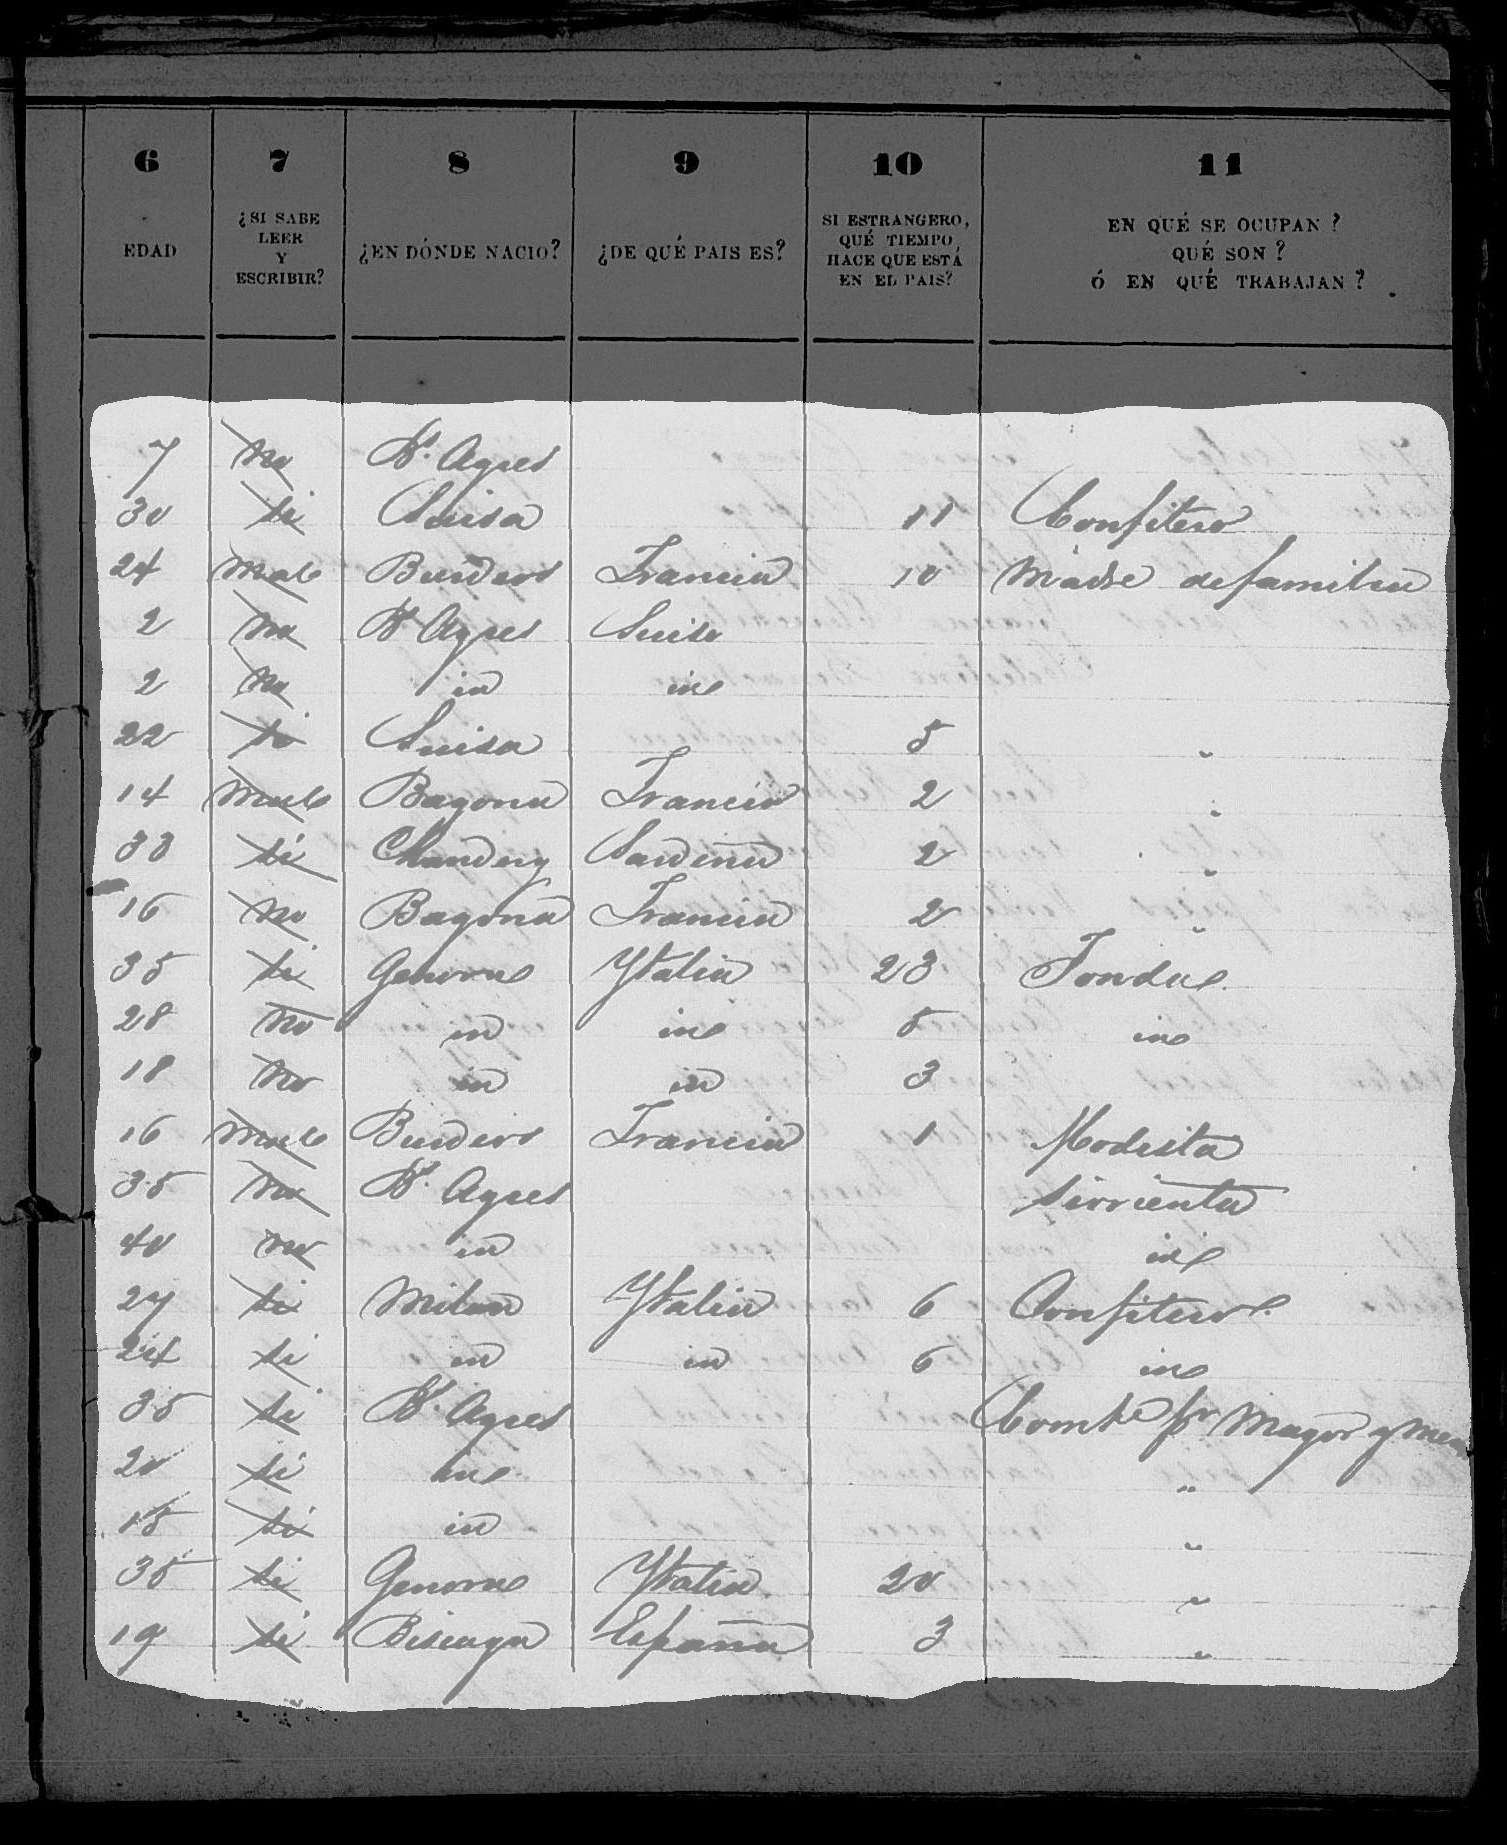 6 7 8 9 10 11
EDAD ¿SI SABE LEER Y ESCRIBIR? ¿EN DÓNDE NACIO? ¿DE QUÉ PAIS ES? SI ESTRANGERO, QUÉ TIEMPO HACE QUE ESTÁ EN EL PAIS? EN QUÉ SE OCUPAN? QUÉ SON? Ó EN QUÉ TRABAJAN?
7 no Bs. Ayres
30 si Suisa 11 Confitero
24 Malo Burdeos Francia 10 Madre de familia
2 no Bs Ayres Suisa
2 no id id
22 si Suisa 5 "
14 Malo Bayona Francia 2 "
33 si Sardeña 2 "
16 no Bayona Francia 2 "
35 si Genova Ytalia 23 Fonda
28 no id id 5 id
18 no id id 3
16 Malo Burdeos Francia 1 Modista
35 no Bs. Ayres Sirvienta
40 no id id
27 si Milan Ytalia 6 Confitero
24 si id id 6 id
35 si Bs. Ayres Comte pr Mayor y men
20 si id "
15 si id "
35 si Genova Ytalia 20 "
19 si Biscaya España 3 "